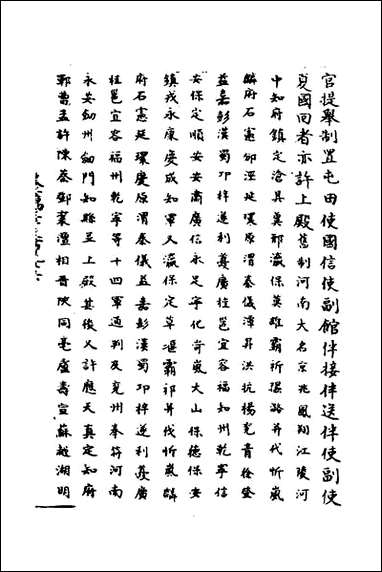 官提舉制置屯田使國信使副館伴接伴送伴使副使
夏國回者亦許上殿舊制河南大名京兆鳳翔江陵河
中知府鎮定滄冀鄚瀛保英雄霸祈潞并代忻嵐
麟府石憲延環原渭秦儀漳昇洪杭楊兗青徐登
益嘉彭漢蜀邛梓遂利夔廣桂邕宜容福知州乾寧信
安保定順安安肅廣信永定寧化岢嵐火山保德保安
鎮戎永康慶成知軍又瀛保定草灞霸祁并伐忻嵐麟
府石憲延環慶原渭秦儀益嘉彭漢蜀邛梓遂利夔廣
桂邕宜容福州乾寧等十四軍通判及兗州奉符河南
永安劍州劍門知縣並上殿其後又許應天真定知府
鄆曹孟許陳蔡鄧襄澶相晉陝同亳盧壽宣蘇越湖明